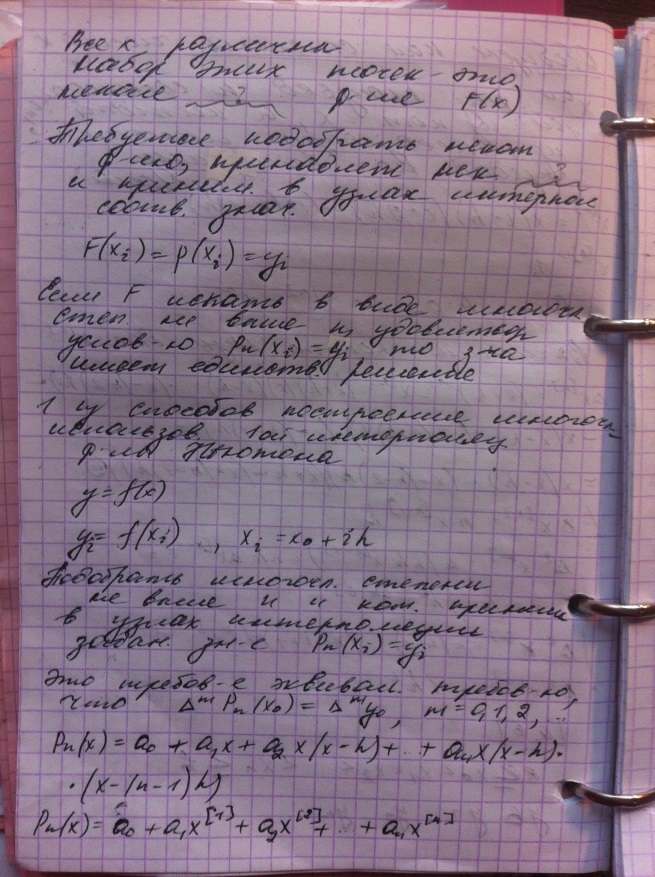 Все x различны
Набор этих точек – это
некие ф-ие F(x)
Требуется подобрать некот
ф-ию, принадлеж нек
и приним. в узлах интерпол
соотв. знач.
F(xᵢ) = p(xᵢ) = yᵢ
Если F искать в виде многочл
степ. не выше n, удовлетвор
услов-ю Pₙ(xᵢ) = yᵢ то з-ча
имеет единств. решение
1 из способов построение многочл-
использов. 1ой интерполяц
ф-лы Ньютона
y = f(x)
yᵢ = f(xᵢ) , xᵢ = x₀ + ih
Подобрать многочл. степени
не выше n и кот. приним
в узлах интерполяции
задан. зн-е Pₙ(xᵢ) = yᵢ
это требов-е эквивал. требов-ю,
что Δᵐ Pₙ(x₀) = Δᵐy₀, m = 0, 1, 2, ..
Pₙ(x) = a₀ + a₁x + a₂ x(x-h) + .. + aₙx(x-h)·
·(x-(n-1)h)
Pₙ(x) = a₀ + a₁x^[1] + a₂x^[2] + .. + aₙx^[n]